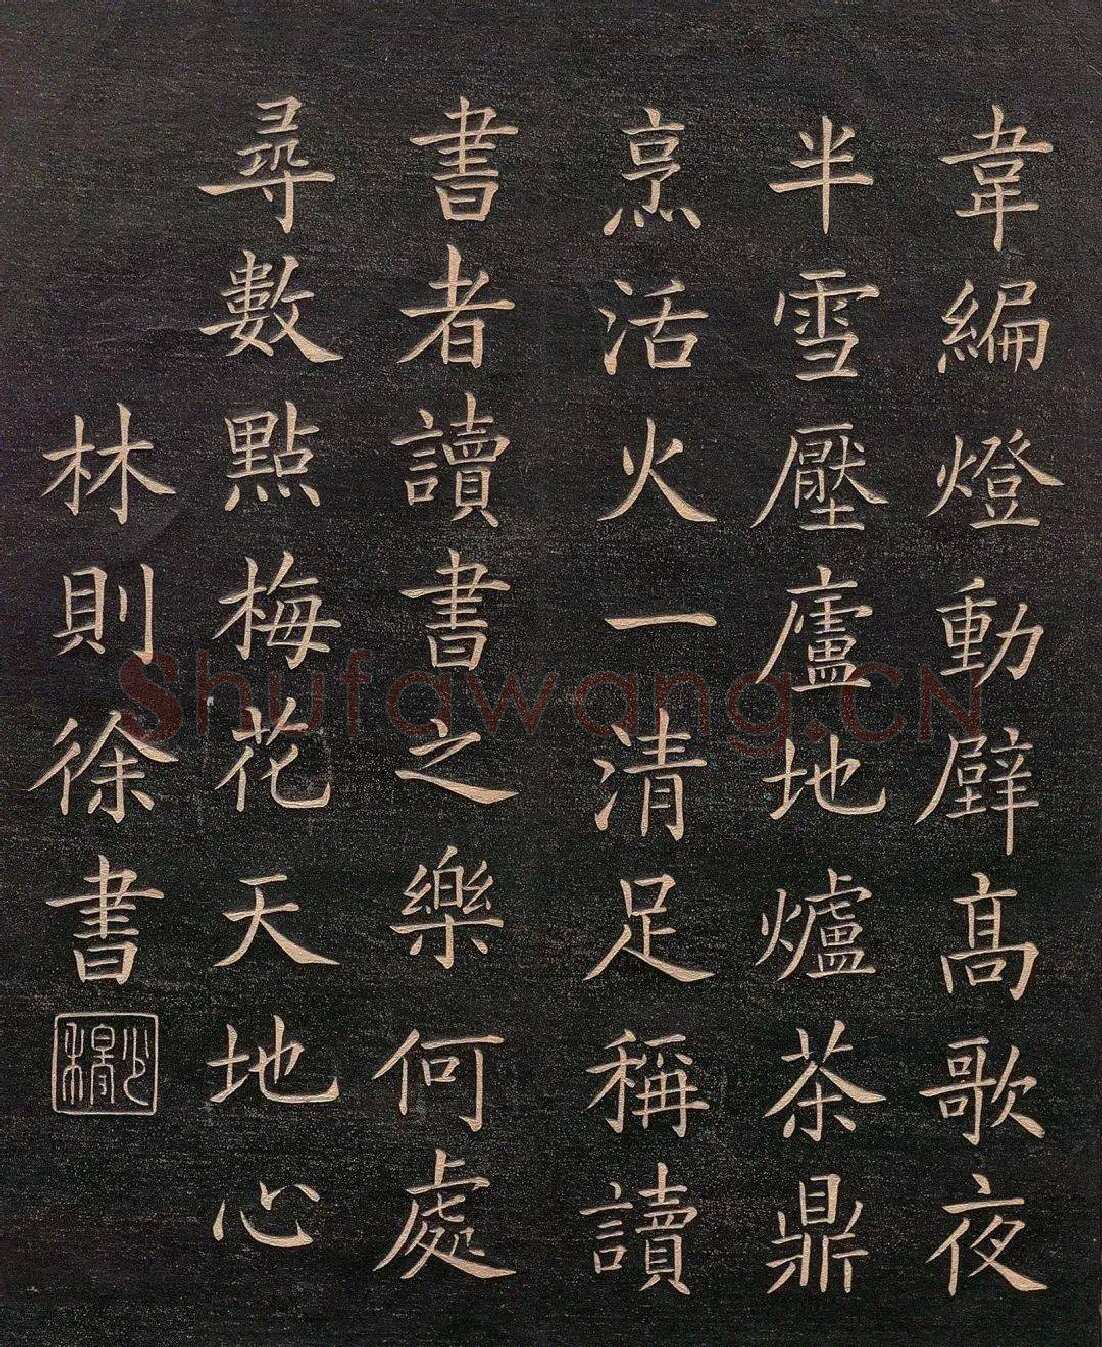 韋編燈動壁高歌夜
半雪壓廬地爐茶鼎
烹活火一清足稱讀
書者讀書之樂何處
尋數點梅花天地心
林則徐書
少穆
Shufawang.CN